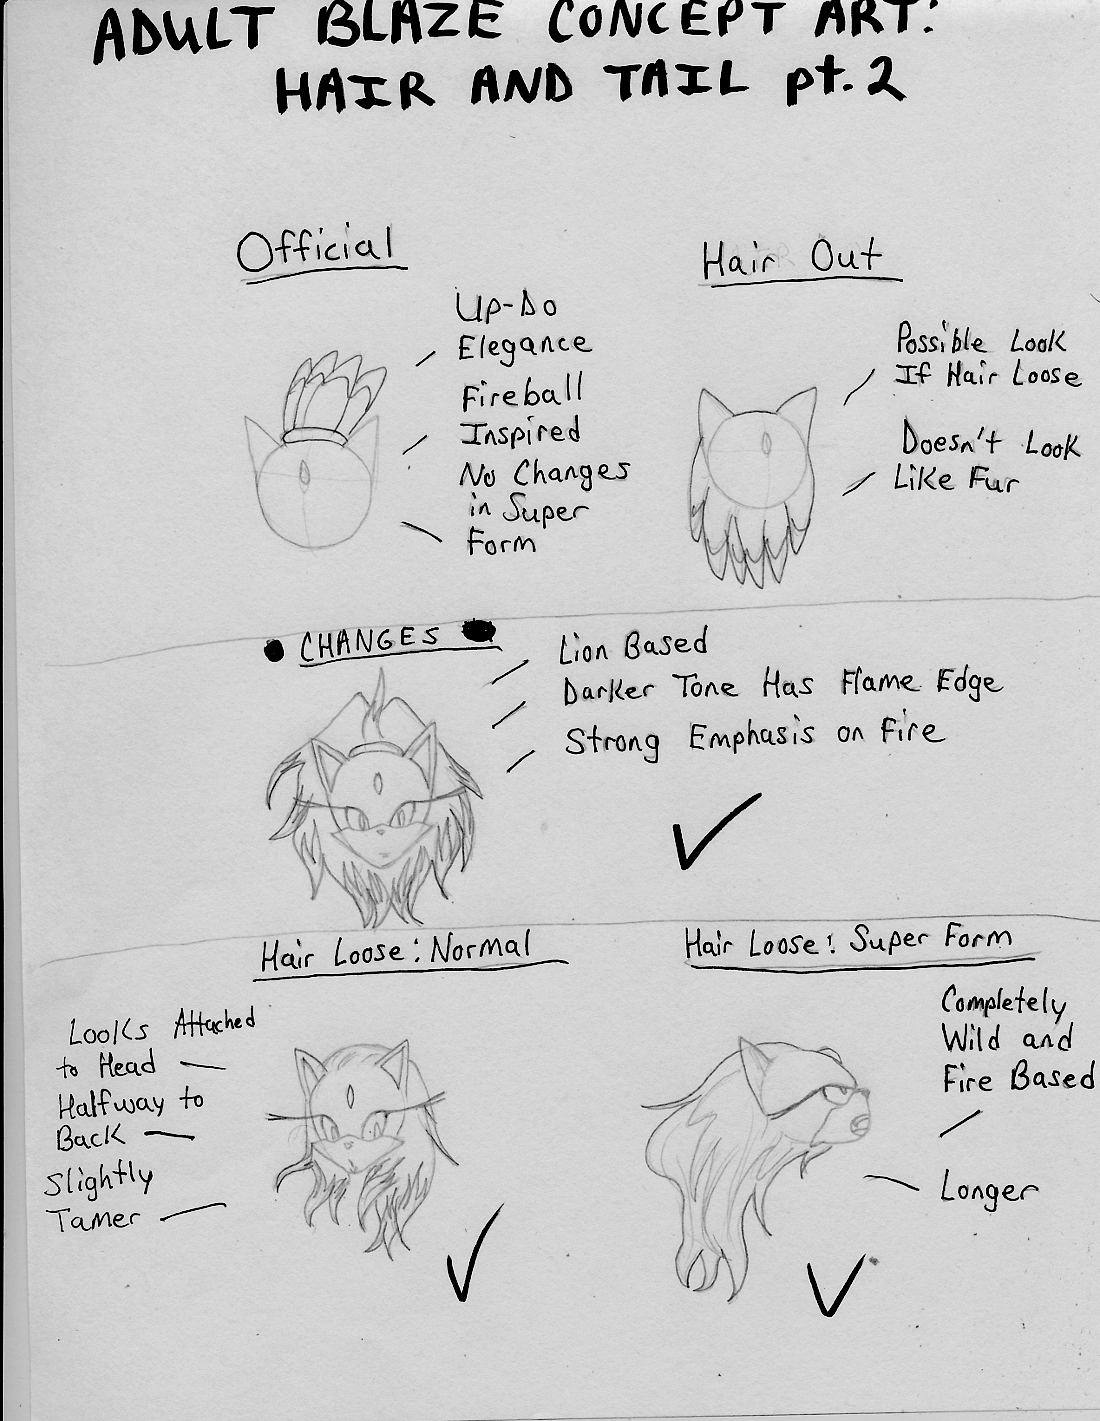 ADULT BLAZE CONCEPT ART:
HAIR AND TAIL pt.2
Official
Up-Do
Elegance
Fireball
Inspired
No Changes
in Super
Form
Hair Out
Possible Look
If Hair Loose
Doesn't Look
Like Fur
CHANGES
Lion Based
Darker Tone Has Flame Edge
Strong Emphasis on Fire
Hair Loose: Normal
Looks Attached
to Head
Halfway to
Back
Slightly
Tamer
Hair Loose: Super Form
Completely
Wild and
Fire Based
Longer